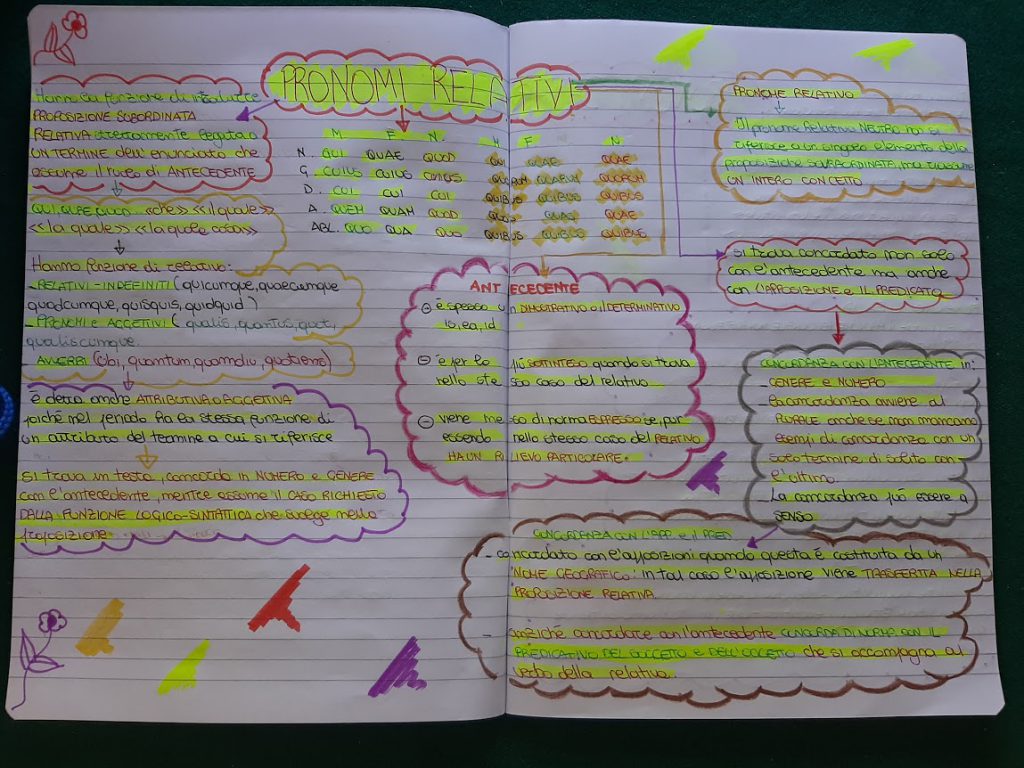 PRONOMI RELATIVI
Hanno la funzione di introdurre
PROPOSIZIONE SUBORDINATA
RELATIVA strettamente legata a
UN TERMINE dell'enunciato che
assume il ruolo di ANTECEDENTE
QUI, QUAE, QUOD <<che>> <<il quale>>
<<la quale>> <<la quale cosa>>
Hanno funzione di relativo:
- RELATIVI-INDEFINITI (quicumque, quaecumque
quodcumque, quisquis, quidquid)
- PRONOMI e AGGETTIVI (qualis, quantus, quot,
qualiscumque.
AVVERBI (ubi, quantum, quamdiu, quotiens)
è detta anche ATTRIBUTIVA o AGGETTIVA
poiché nel periodo ha la stessa funzione di
un attributo del termine a cui si riferisce
SI trova in testa, concorda in NUMERO e GENERE
con l'antecedente, mentre assume il CASO RICHIESTO
DALLA FUNZIONE LOGICO-SINTATTICA che svolge nella
proposizione
M F N. M F N
N. QUI QUAE QUOD QUI QUAE QUAE
G. CUIUS CUIUS CUIUS QUORUM QUARUM QUORUM
D. CUI CUI CUI QUIBUS QUIBUS QUIBUS
A. QUEM QUAM QUOD QUOS QUAS QUAE
ABL. QUO QUA QUO QUIBUS QUIBUS QUIBUS
ANTECEDENTE
è spesso un DIMOSTRATIVO o DETERMINATIVO
is, ea, id
è per lo più SOTTINTESO quando si trova
nello stesso caso del relativo.
viene invece di norma ESPRESSO se, pur
essendo nello stesso caso del RELATIVO
HA UN RILIEVO PARTICOLARE.
PRONOME RELATIVO
Il pronome Relativo NEUTRO non si
riferisce a un singolo elemento della
proposizione SOVRAORDINATA, ma riassume
UN INTERO CONCETTO
SI trova concordato non solo
con l'antecedente ma anche
con L'APPOSIZIONE e IL PREDICATO
CONCORDANZA CON L'ANTECEDENTE in:
- GENERE e NUMERO
la concordanza avviene al
PLURALE anche se non mancano
esempi di concordanza con un
solo termine di solito con
l'ultimo.
- La concordanza può essere a
SENSO
CONCORDENZA CON L'APP e il PRED
- concordato con l'apposizioni quando questa è costituita da un
NOME GEOGRAFICO: in tal caso l'apposizione viene TRASFERITA NELLA
PROPOSIZIONE RELATIVA.
- anziché concordare con l'antecedente CONCORDA DI NORMA CON IL
PREDICATIVO DEL SOGGETTO E DELL'OGGETTO che si accompagna al
verbo della relativa.